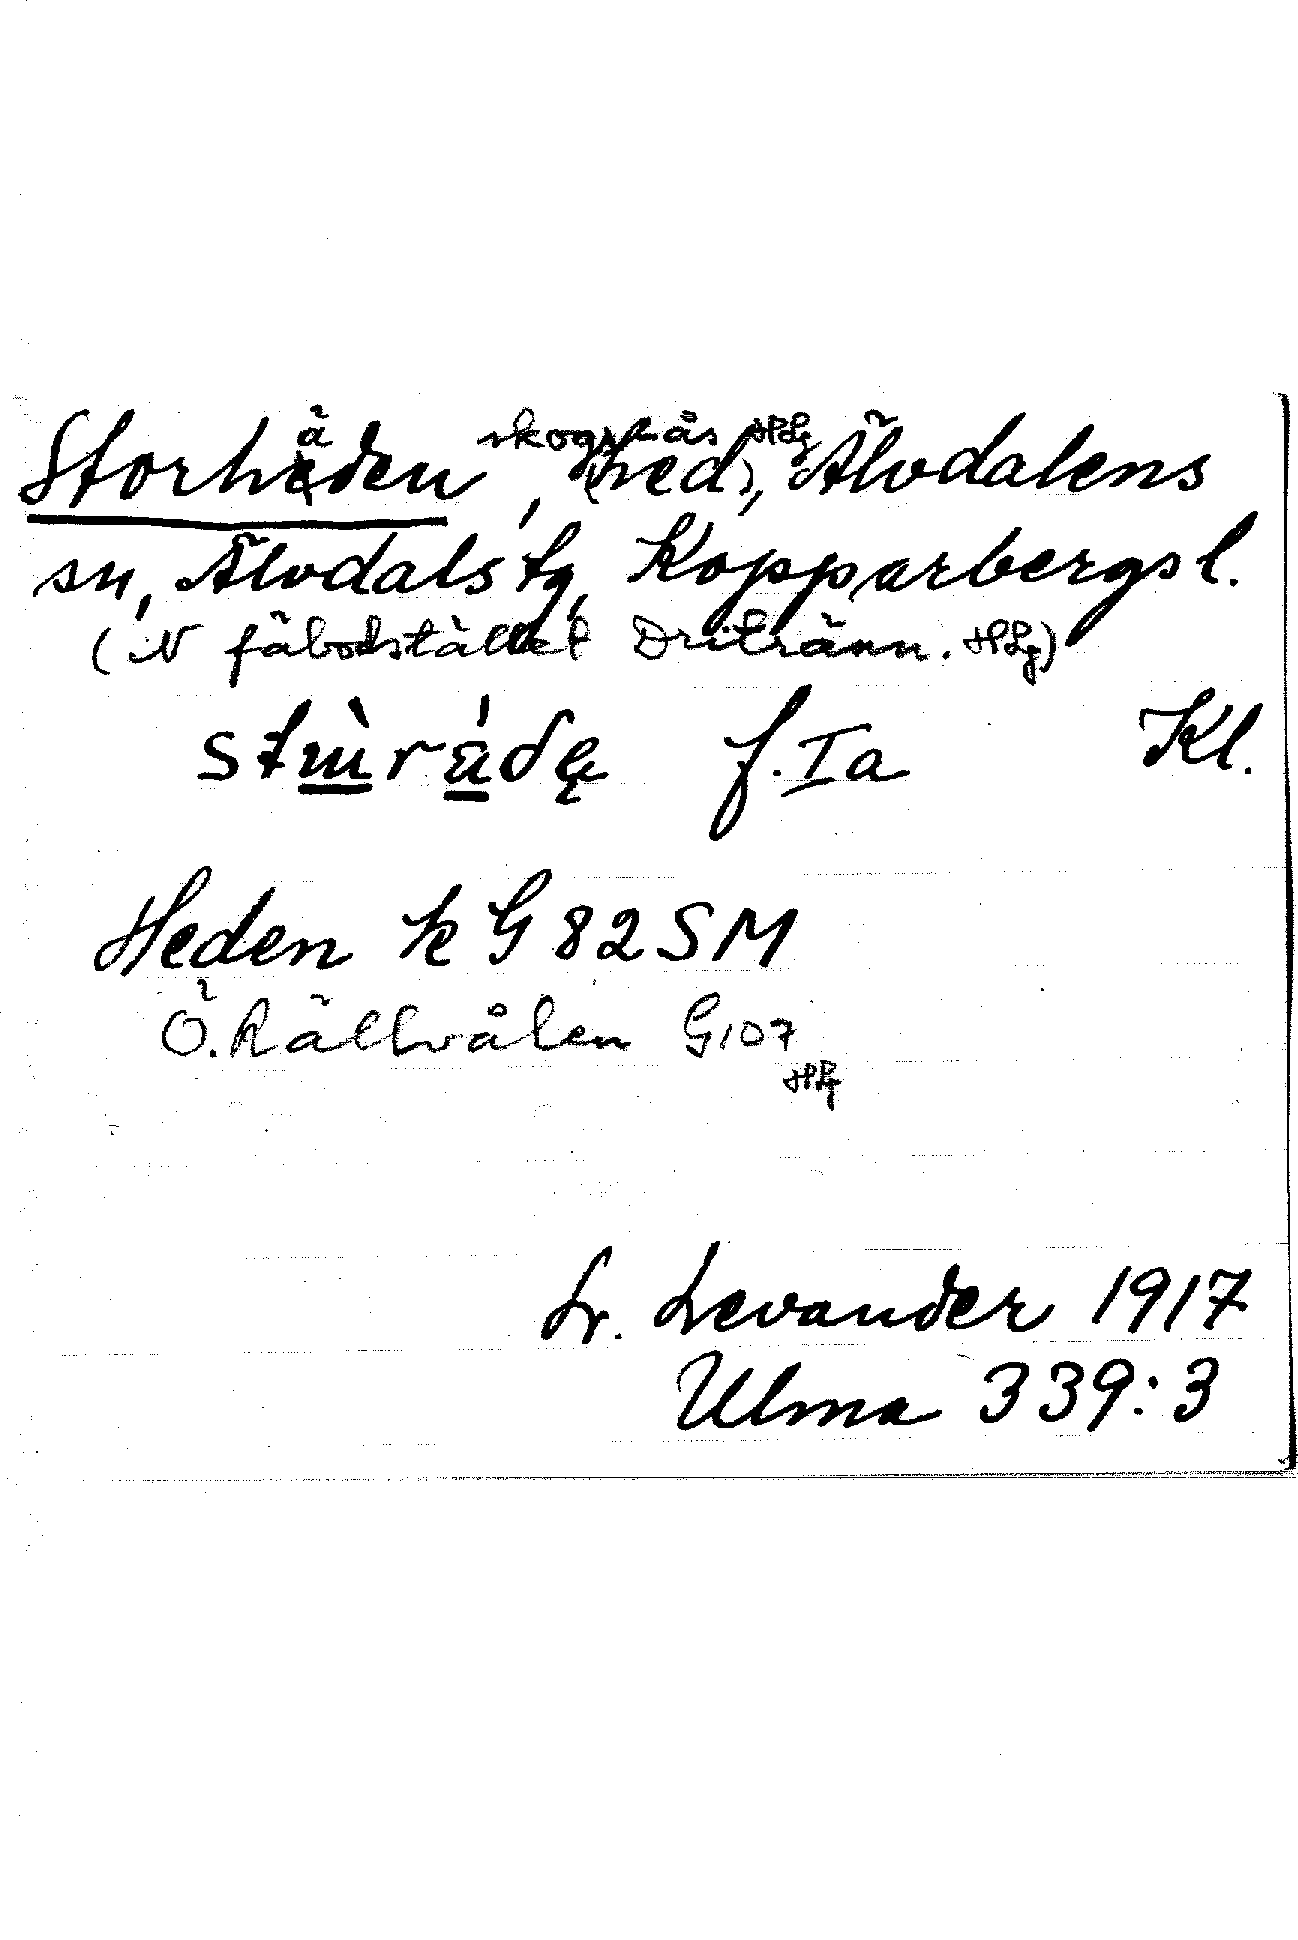 Storheden, skogsås (hed), Älvdalens
ä
sn, Älvdals tg, Kopparbergs l.
(N fäbodstället Dritränn. HLg)
f. Ia Kl.
Heden k G 82 SM
Ö. Rällvålen G 107
HLg
Lr. Levander 1917
Ulma 339:3